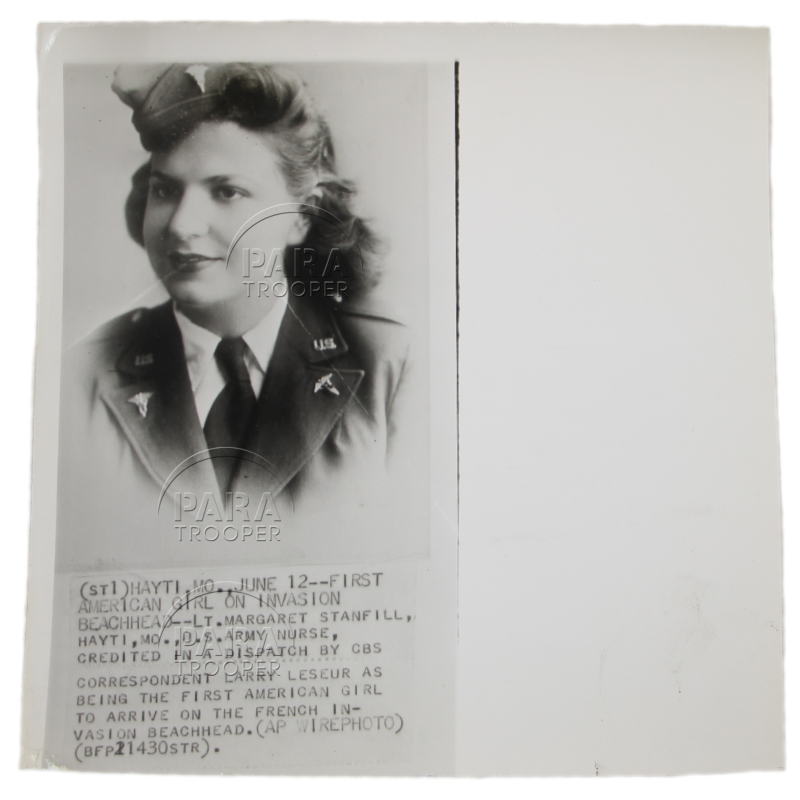 U.S.
U.S.
PARA
TROOPER
PARA
TROOPER
(ST1)HAYTI,MO.,JUNE 12--FIRST
AMERICAN GIRL ON INVASION
BEACHHEAD--LT.MARGARET STANFILL,
HAYTI,MO.,U.S.ARMY NURSE,
CREDITED IN A DISPATCH BY CBS
CORRESPONDENT LARRY LESEUR AS
BEING THE FIRST AMERICAN GIRL
TO ARRIVE ON THE FRENCH IN-
VASION BEACHHEAD.(AP WIREPHOTO)
(BFP21430STR).
PARA
TROOPER